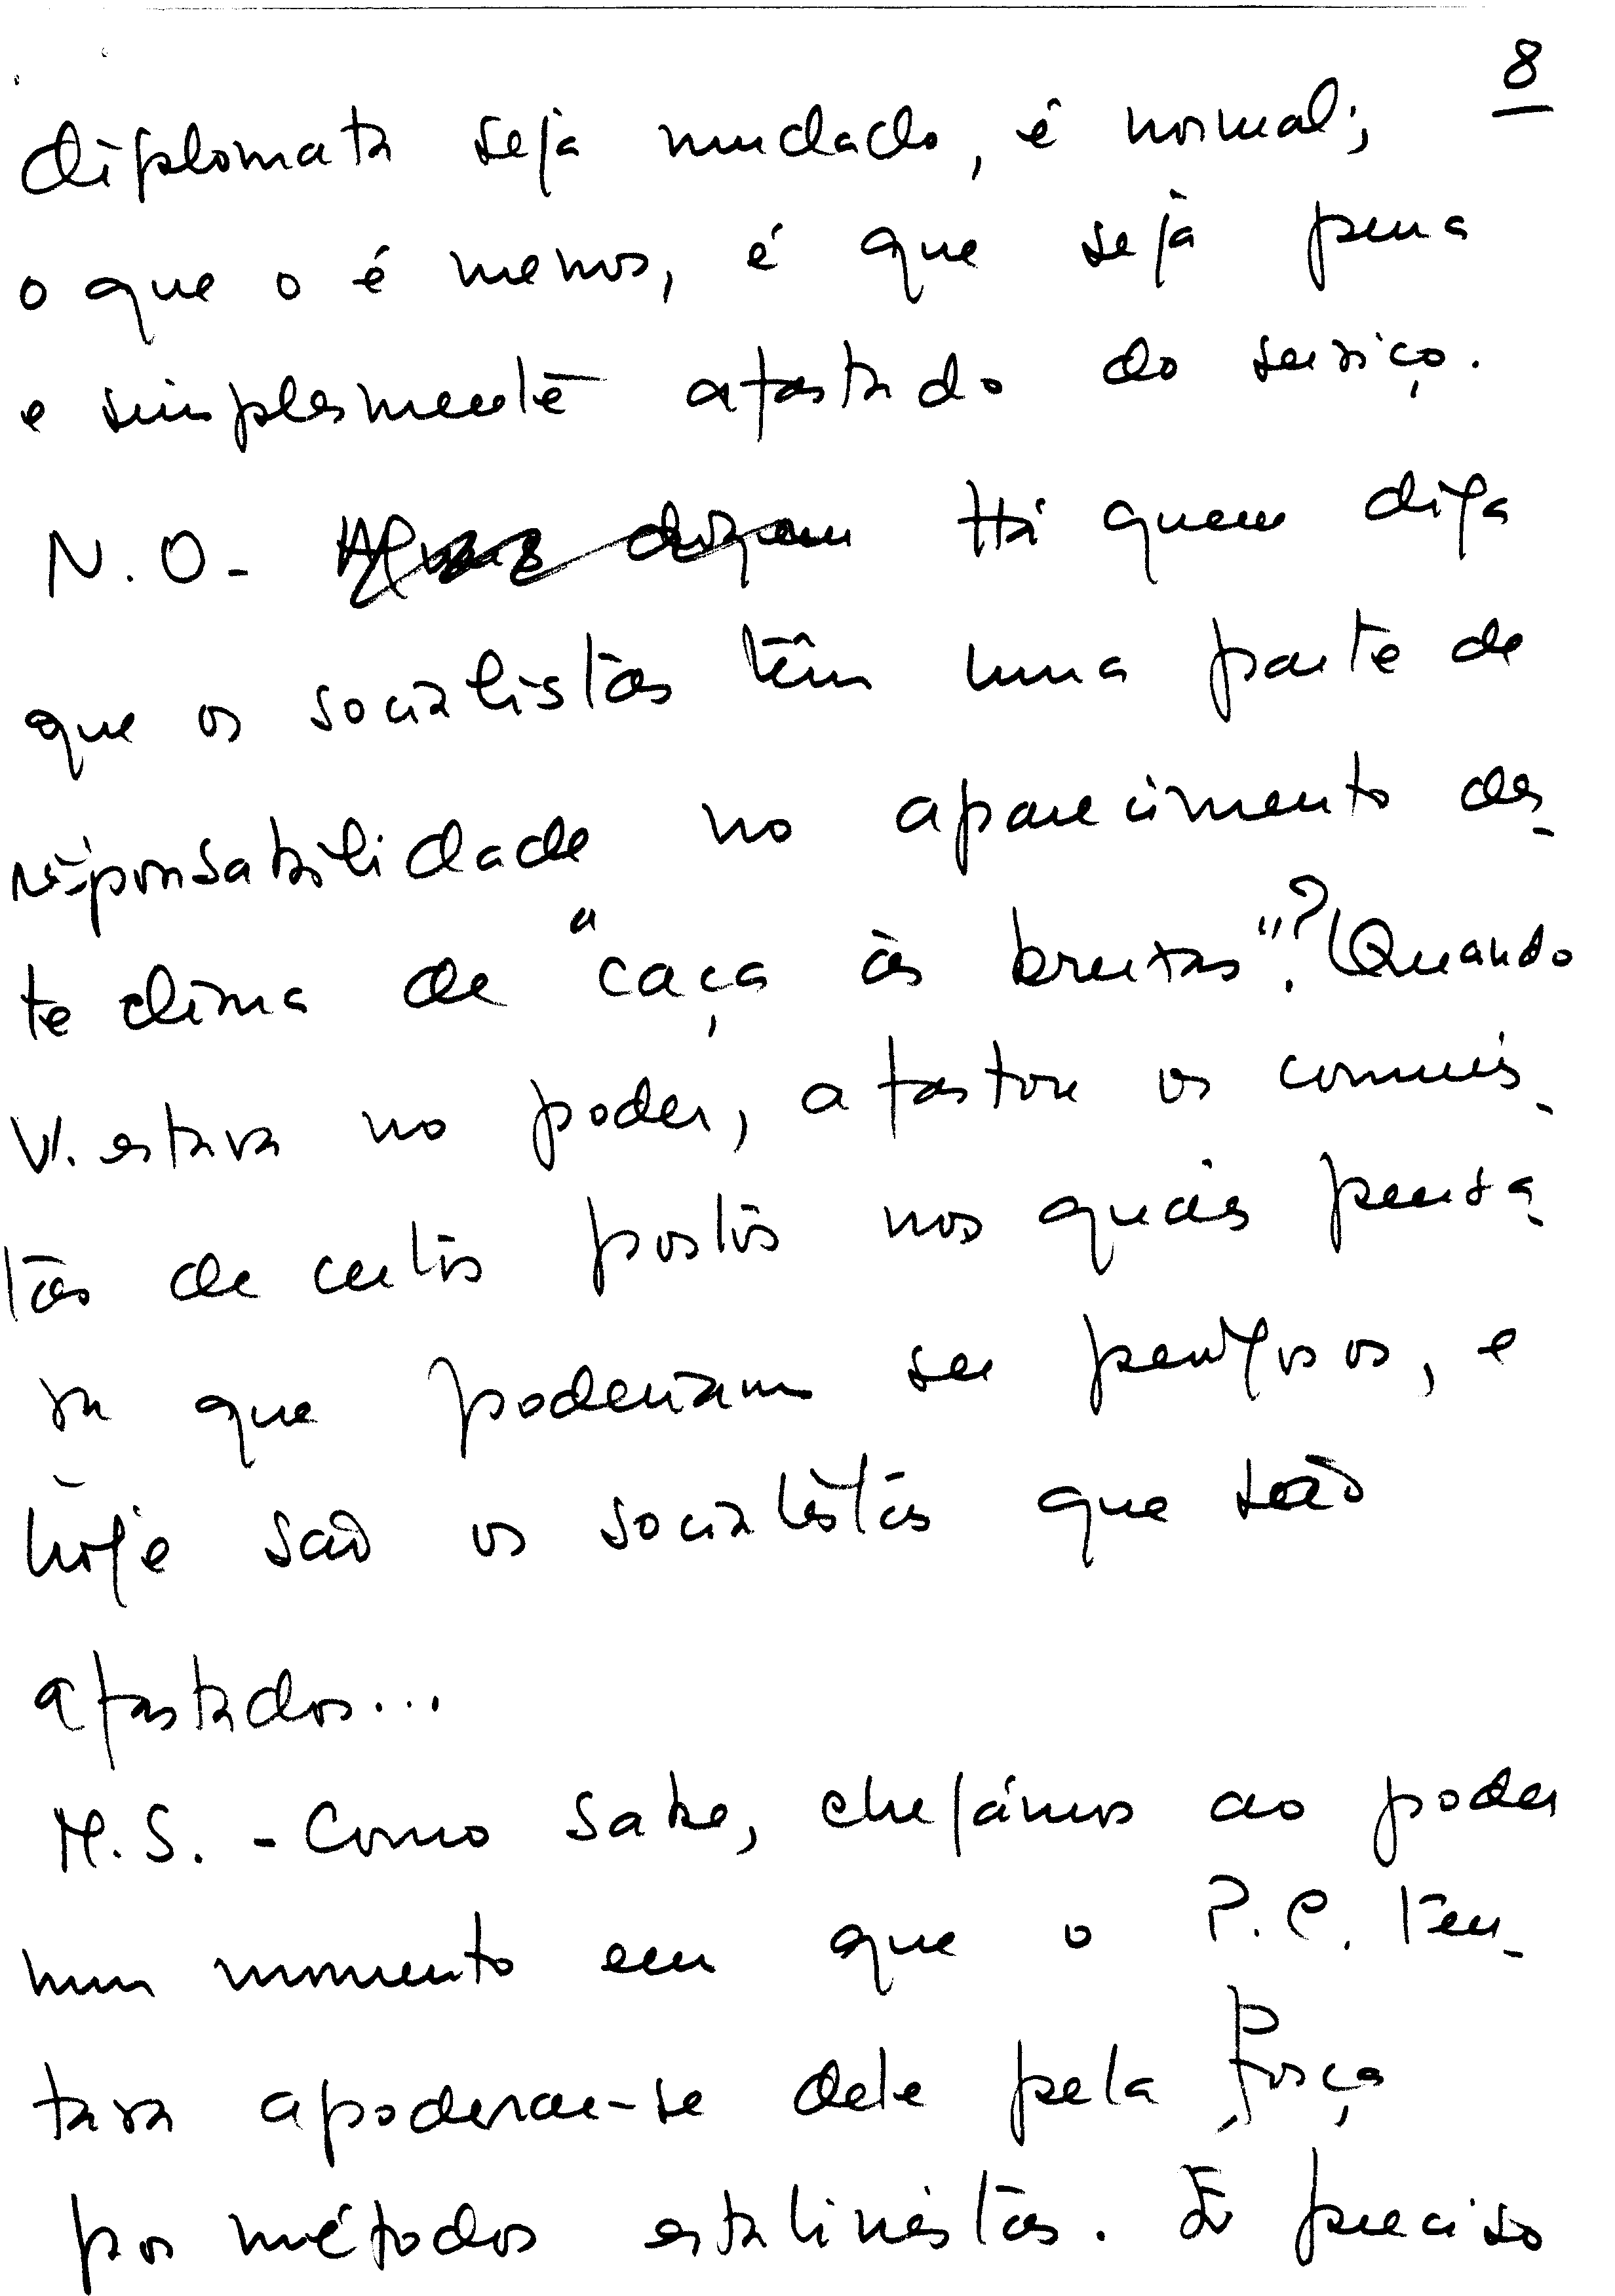 8
diplomata seja mudado, é normal;
o que o é menos, é que seja pura
e simplesmente afastado do serviço.
N.O- Alguns dizem Há quem diga
que os socialistas têm uma parte de
responsabilidade no aparecimento des-
te clima de "caça às bruxas"? Quando
V. estava no poder, afastou os comunis-
tas de certos postos nos quais pensa-
va que poderiam ser perigosos, e
hoje são os socialistas que são
afastados...
M.S. - Como sabe, chegámos ao poder
num momento em que o P.C. ten-
tava apoderar-se dele pela força
por métodos estalinistas. É preciso